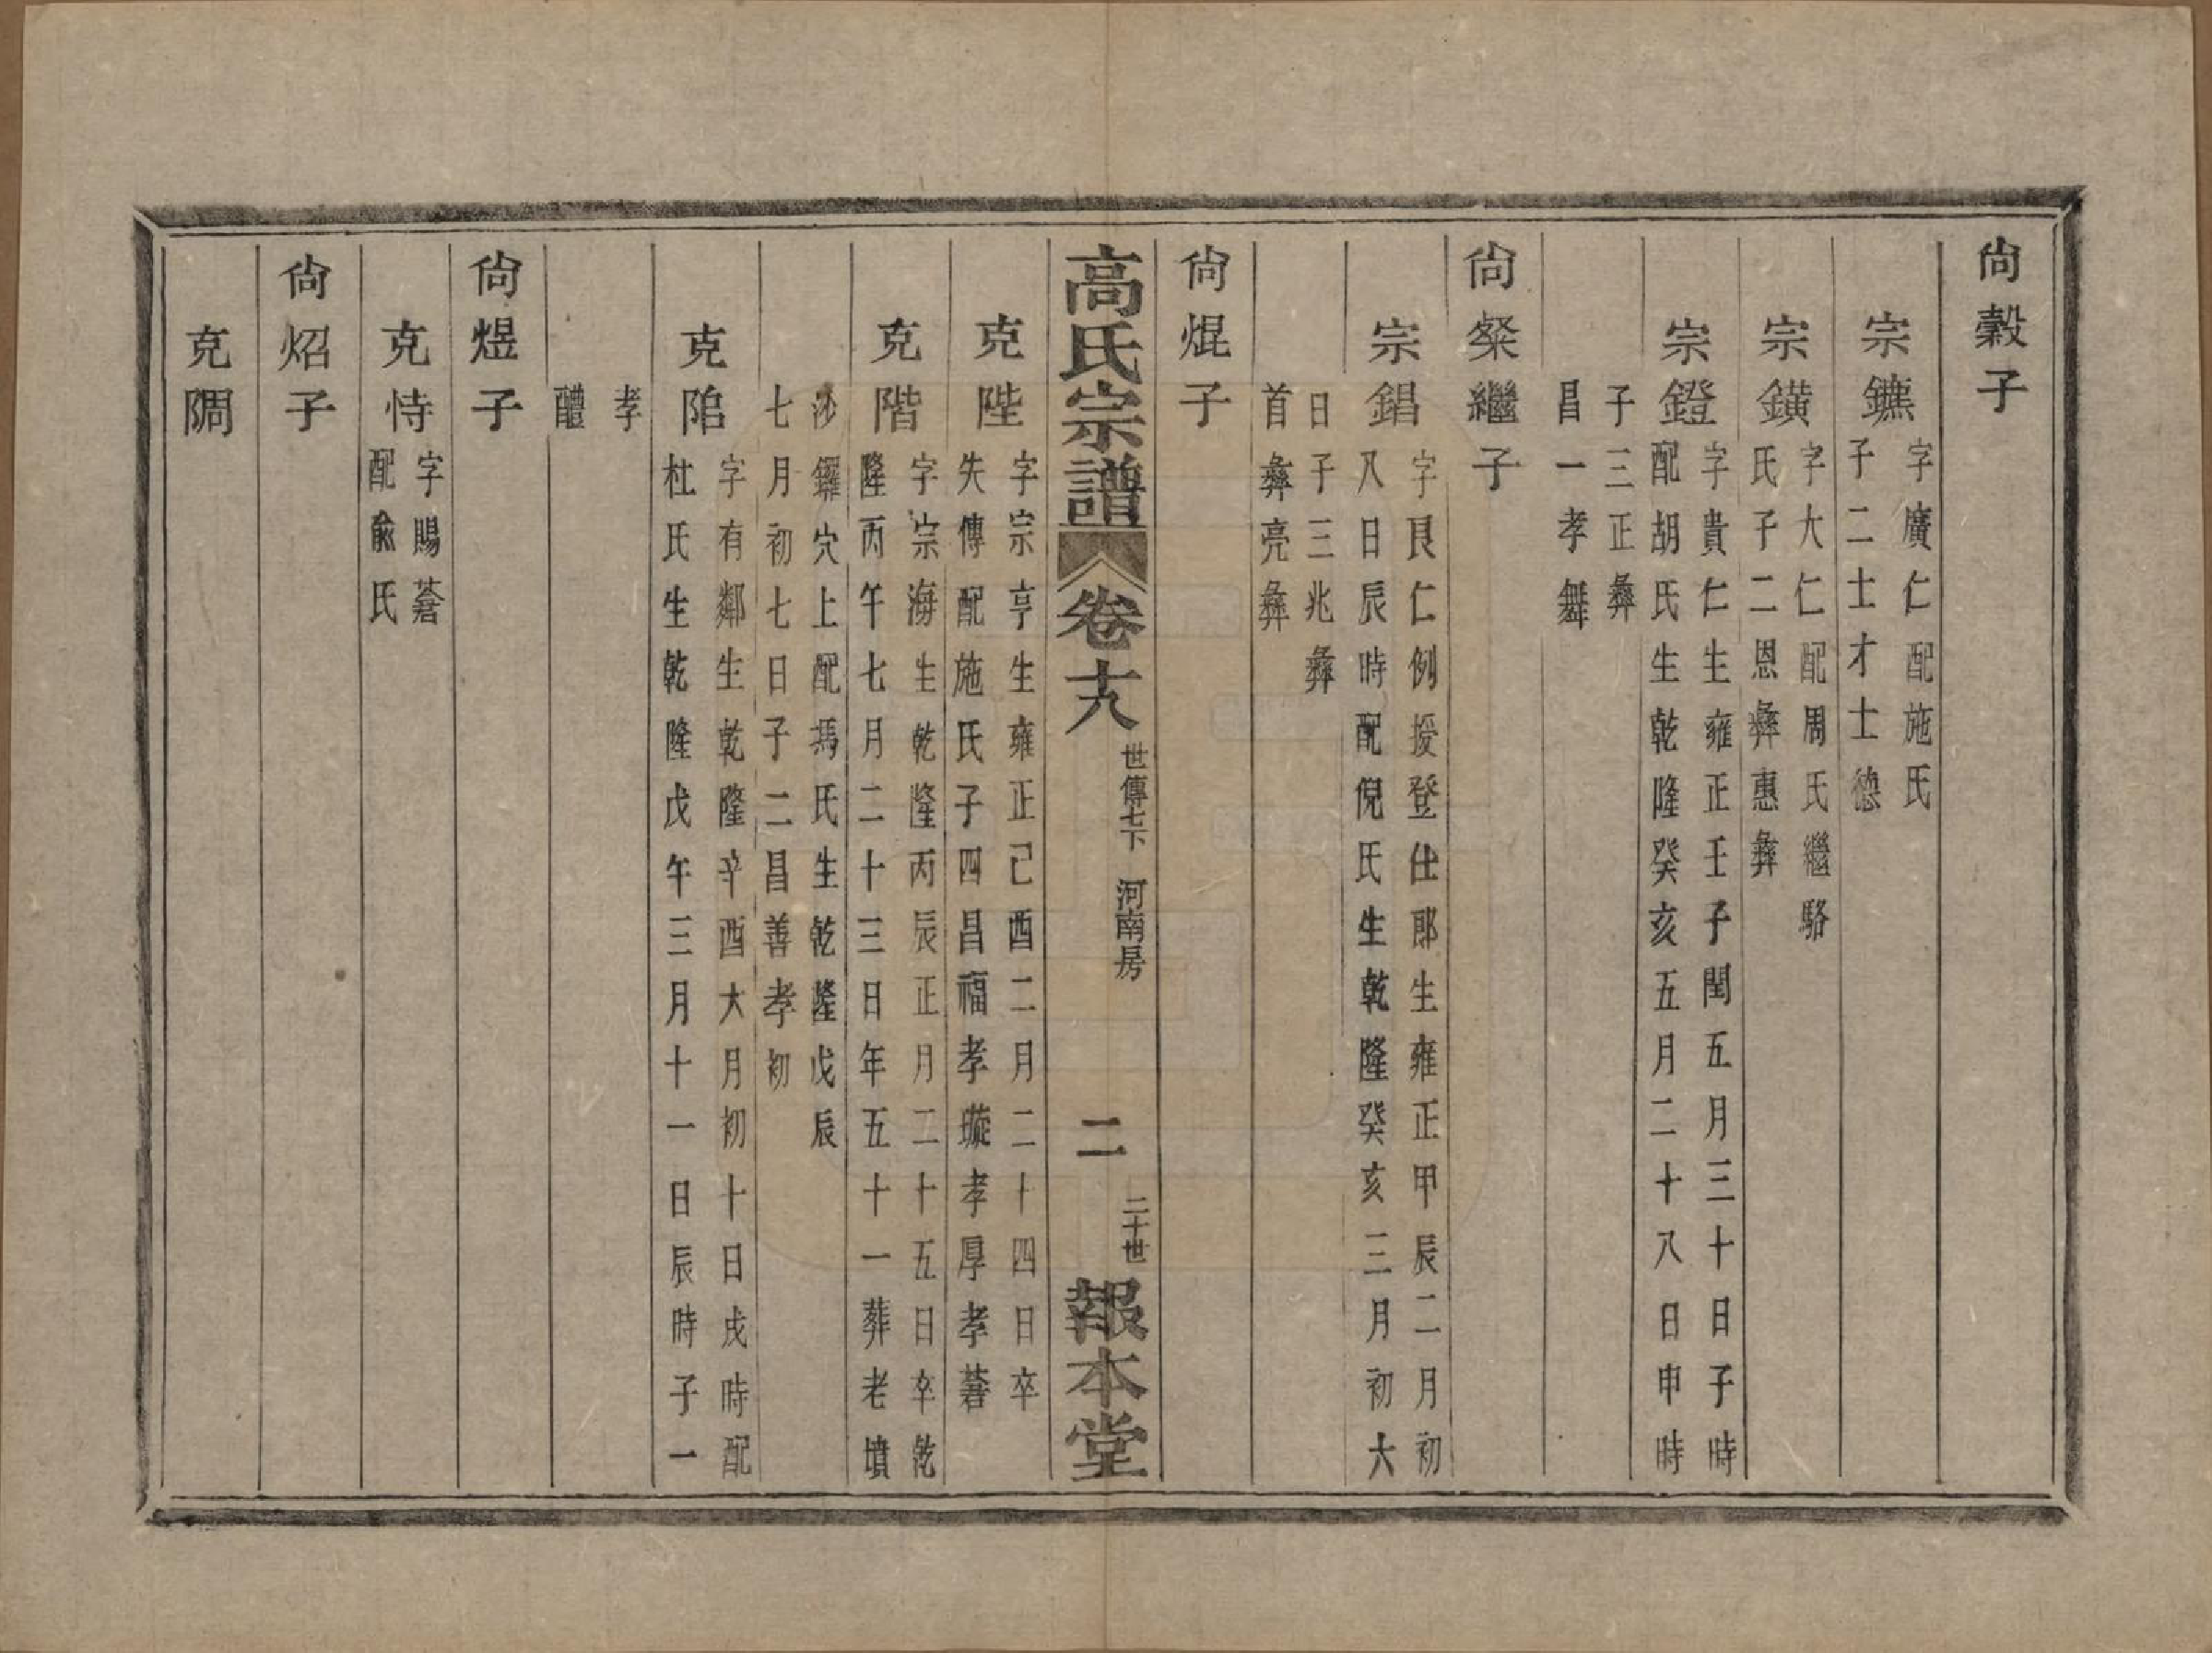 尙穀子
宗鑣
字廣仁配施氏
子二士才士德
宗鐄
字大仁配周氏繼駱
氏子二恩彝惠彝
宗鐙
字貴仁生雍正壬子閏五月三十日子時
配胡氏生乾隆癸亥五月二十八日申時
子三正彝
昌一孝舞
尙粲繼子
宗錩
字艮仁例授登仕郎生雍正甲辰二月初
八日辰時配倪氏生乾隆癸亥三月初六
日子三兆彝
首彝亮彝
尙焜子
高氏宗譜
卷十八
世傳七下 河南房
二
二十世
報本堂
克陛
字宗亨生雍正己酉二月二十四日卒
失傳配施氏子四昌福孝璇孝厚孝蓍
克階
字宗海生乾隆丙辰正月二十五日卒乾
隆丙午七月二十三日年五十一葬老墳
沙鑼穴上配馮氏生乾隆戊辰
七月初七日子二昌善孝初
克陥
字有鄰生乾隆辛酉六月初十日戌時配
杜氏生乾隆戊午三月十一日辰時子一
孝
醴
尙煜子
克恃
字賜蒼
配兪氏
尙炤子
克隝